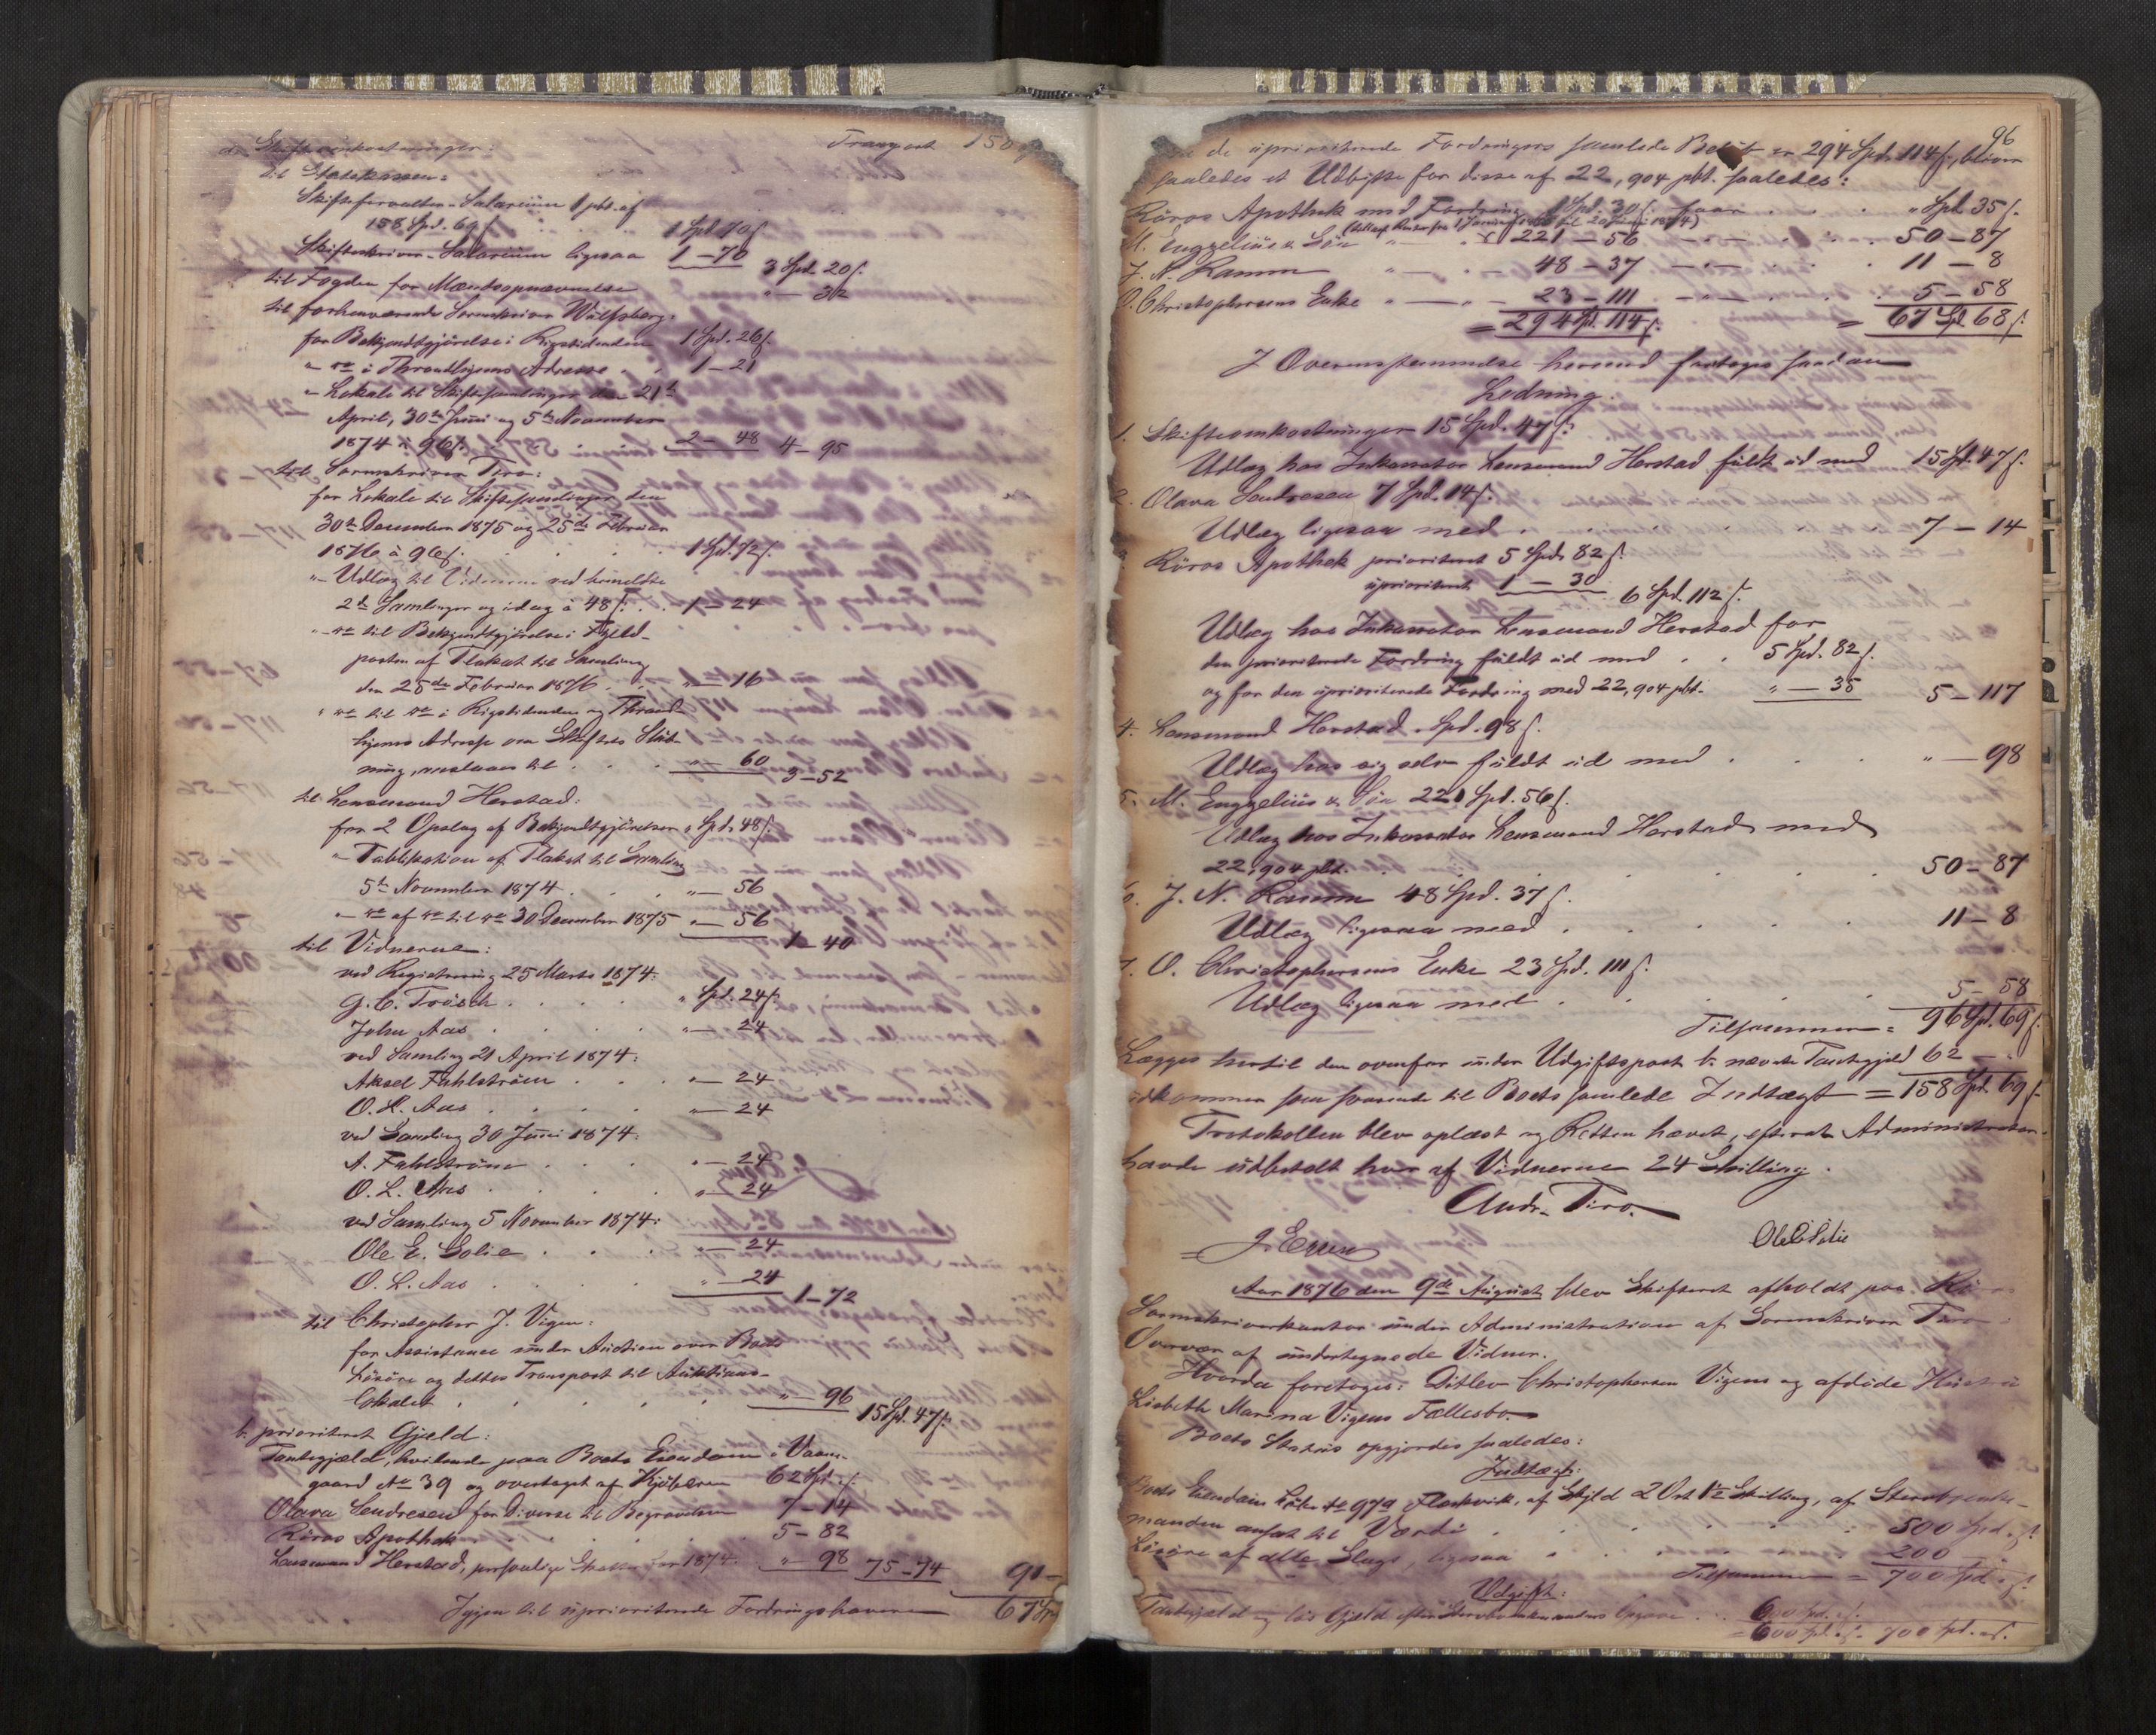 Transport 150
a. Skifteomkostninger:
til Statskassen:
Skifteforvalter-Salarium 1 pCt. af
158 Spd. 69 s. 1 Spd. 70 s.
Skifteskriver-Salarium ligesaa 1 — 70 3 Spd. 20 s.
til Fogden for Mændsopnævnelse " — 32
til forhenværende Sorenskriver Wulfsberg:
for Bekjendtgjörelse i Rigstidenden 1 Spd. 26 s.
" do i Throndhjems Adresse . . 1 — 21
" Lokale til Skiftesamlinger den 21de
April, 30te Juni og 5te November
1874 à 96 s. 2 — 48 4 — 95
til Sorenskriver Tiro:
for Lokale til Skiftesamlinger den
30te December 1875 og 25de Februar
1876 à 96 s. . . . . 1 Spd. 72 s.
" Udlæg til Vidnerne ved bemeldte
2de Samlinger og idag à 48 s. . . 1 — 24
" do til Bekjendtgjörelse i Fjeld-
posten af Plakat til Samling
den 25de Februar 1876 . . " — 16
" do til do i Rigstidenden og Thrond-
hjems Adresse om Skiftets Slut-
ning, anslaaes til . . . " — 60 3 — 52
til Lensmand Herstad:
for 2 Opslag af Bekjendtgjörelser " Spd. 48 s.
" Publikation af Plakat til Samling
5te November 1874 . . . " — 56
" do af do til do 30 December 1875 " — 56
1 — 40
til Vidnerne:
ved Registrering 25 Marts 1874:
G. C. Trösch . . . . " Spd. 24 s.
John Aas . . . . . " — 24
ved Samling 21 April 1874:
Aksel Fahlström . . . " — 24
O. L. Aas . . . . . " — 24
ved Samling 30 Juni 1874:
A. Fahlström . . . . " — 24
O. L. Aas . . . . . " — 24
ved Samling 5 November 1874:
Ole E. Golie . . . . " — 24
O. L. Aas . . . . . " — 24
1 — 72
til Christopher J. Vigen:
for Assistance under Auction over Boets
Lösöre og dettes Transport til Auktions-
lokalet . . . . . " — 96
15 Spd. 47 s.
b. prioriteret Gjæld:
Pantegjæld, hvilende paa Boets Eiendom Vaan-
gaard No 39 og overtaget af Kjöberen 62 Spd. " s.
Olava Sendresen for Diverse til Begravelsen 7 — 14
Röros Apothek . . . . 5 — 82
Lensmand Herstad, personlige Skatter for 1874 " — 98 75 — 74
91 —
Igjen til uprioriterede Fordringshavere 67 Sp
96
de uprioriterede Fordringers samlede Belöb er 294 Spd. 114 s., bliver
saaledes et Udbytte for disse af 22,904 pCt. saaledes:
Röros Apothek med Fordring 1 Spd. 30 s. faar . . . " Spd. 35 s.
M. Engzelius & Sön " — " 221 — 56 — " — . . . 50 — 87
J. N. Ramm " — " 48 — 37 — " — . . . 11 — 8
O. Christophersens Enke " — " — 23 — 111 — " — . . 5 — 58
= 294 Spd. 114 s. = 67 Spd. 68 s.
I Overensstemmelse hermed fortoges saadan
Lodning.
1. Skifteomkostninger 15 Spd. 47 s.
Udlæg hos Inkassator Lensmand Herstad fuldt ud med 15 Spd. 47 s.
2. Olava Sendresen 7 Spd. 14 s.
Udlæg ligesaa med . . . . . . 7 — 14
Röros Apothek prioriteret 5 Spd. 82 s.
uprioriteret 1 — 30 6 Spd. 112 s.
Udlæg hos Inkassator Lensmand Herstad for
den prioriterede Fordring fuldt ud med . . 5 Spd. 82 s.
og for den uprioriterede Fordring med 22,904 pCt. " — 35 5 — 117
4. Lensmand Herstad " Spd. 98 s.
Udlæg hos sig selv fuldt ud med . . . . " — 98
5. M. Engzelius & Sön 221 Spd. 56 s.
Udlæg hos Inkassator Lensmand Herstad med
22,904 pCt. . . . . . . 50 — 87
6. J. N. Ramm 48 Spd. 37 s.
Udlæg ligesaa med . . . . . 11 — 8
7. O. Christophersens Enke 23 Spd. 111 s.
Udlæg ligesaa med . . . . . 5 — 58
Tilsammen = 96 Spd. 69 s.
Lægges hertil den ovenfor under Udgiftspost b. nævnte Pantegjæld 62 — "
udkommer som svarende til Boets samlede Indtægt = 158 Spd. 69 s.
Protokollen blev oplæst og Retten hævet, efterat Administrator
havde udbetalt hver af Vidnerne 24 Skilling.
Andr. Tiro.
J. Eggen Ole E Golie
Aar 1876 den 9de August blev Skifteret afholdt paa Rö
Sorenskriverkontor under Administration af Sorenskriver Tiro
Overvær af undertegnede Vidner.
Hvorda foretoges: Ditlev Christophersen Vigens og afdöde Hustru
Lisbeth Marina Vigens Fællesbo.
Boets Status opgjordes saaledes:
Indtægt:
Boets Eiendom Löbe No 97a Floskvik, af Skyld 2 Ort 12 Skilling, af Stervboenke-
manden ansat til Værdi . . . . . . 500 Spd. " s.
Lösöre af alle Slags, ligesaa . . . . . 200 — "
Tilsammen = 700 Spd. " s.
Udgift:
Pantegjæld og lös Gjæld efter Stervboenkemandens Opgave . . 600 Spd. " s.
= 600 Spd. " s. 700 Spd. " s.